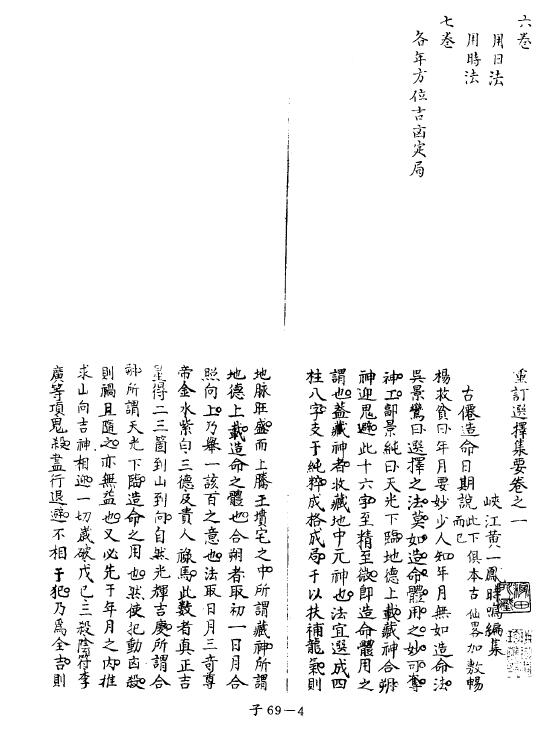 六卷
用日法
用時法
七卷
各年方位吉凶定局
重訂選擇集要卷之一
峽江黃一鳳時鳴編集
古僊造命日期說此下俱本古仙畧加敷暢而已
楊救貧曰年月要妙少人知年月無如造命法
吳景鸞曰選擇之法莫如造命體用之妙可奪
神工郭景純曰天光下臨地德上載藏神合朔
神迎鬼避此十六字至精至微即造命體用之
謂也蓋藏神者收藏地中元神也法宜選成四
柱八字支干純粹成格成局干以扶補龍氣則
地脉旺盛而上騰于墳宅之中所謂藏神所謂
地德上載造命之體也合朔者取初一日月合
照向上乃舉一該百之意也法取日月三奇尊
帝金水紫白三德及貴人祿馬此數者真正吉
星得二三箇到山到向自然光輝吉慶所謂合
朔所謂天光下臨造命之用也然使犯動凶殺
則禍且隨之亦無益也又必先于年月之内推
求山向吉神相迎一切歲破戊己三殺陰符李
廣等項鬼殺盡行退避不相于犯乃爲全吉則
子69—4